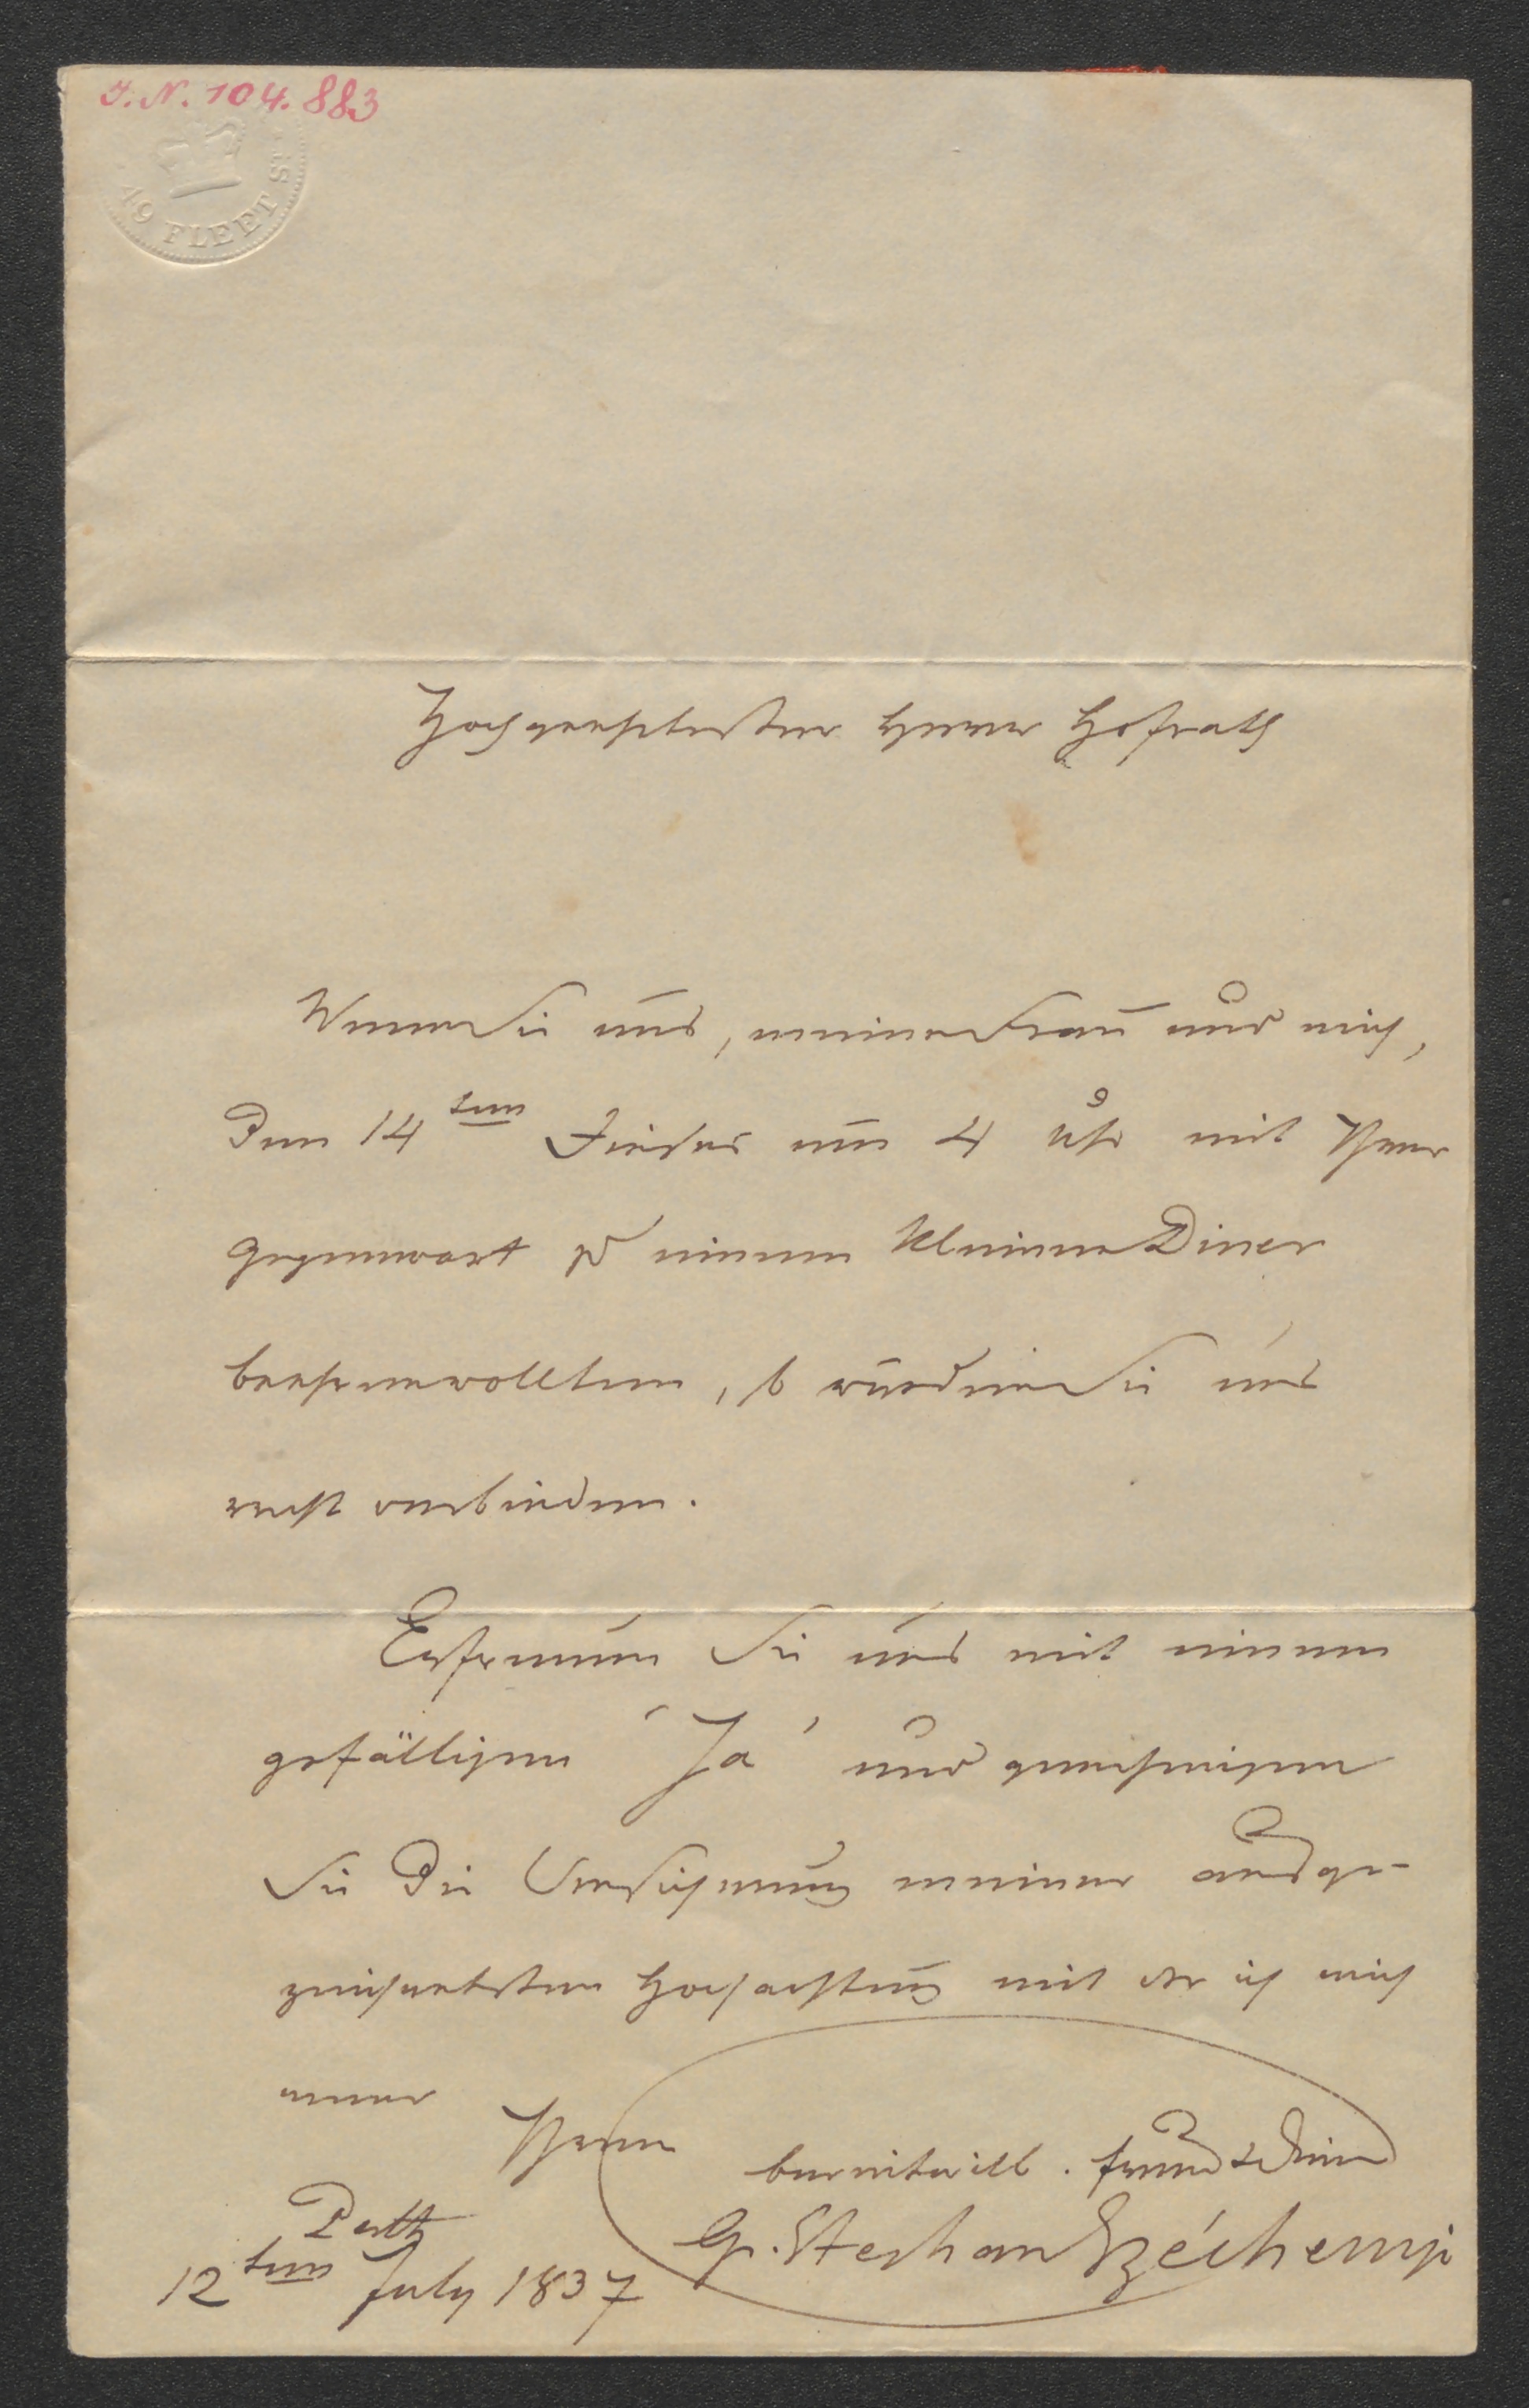 I. N. 104.883
49 FLEET St.
Hochgeehrtester Herr Hofrath
Wenn Sie uns, meine Frau und mich,
den 14ten dieses um 4 Uhr mit Ihrer
Gegenwart zu einem kleinen Diner
beehren wollten, so würden Sie uns
recht verbinden.
Erfreuen Sie uns mit einem
gefälligen "Ja" und genehmigen
Sie die Versicherung meiner ausge-
zeichnetsten Hochachtung mit der ich mich
nenne
Ihren
bereitwill. Freund & Diener
Pesth
Gr. Stephan Széchenyi
12ten July 1837